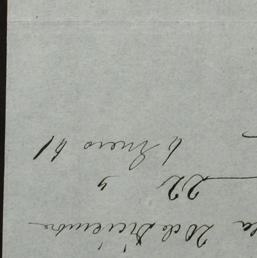 20 de Diciembre
22 y
6 Enero 41